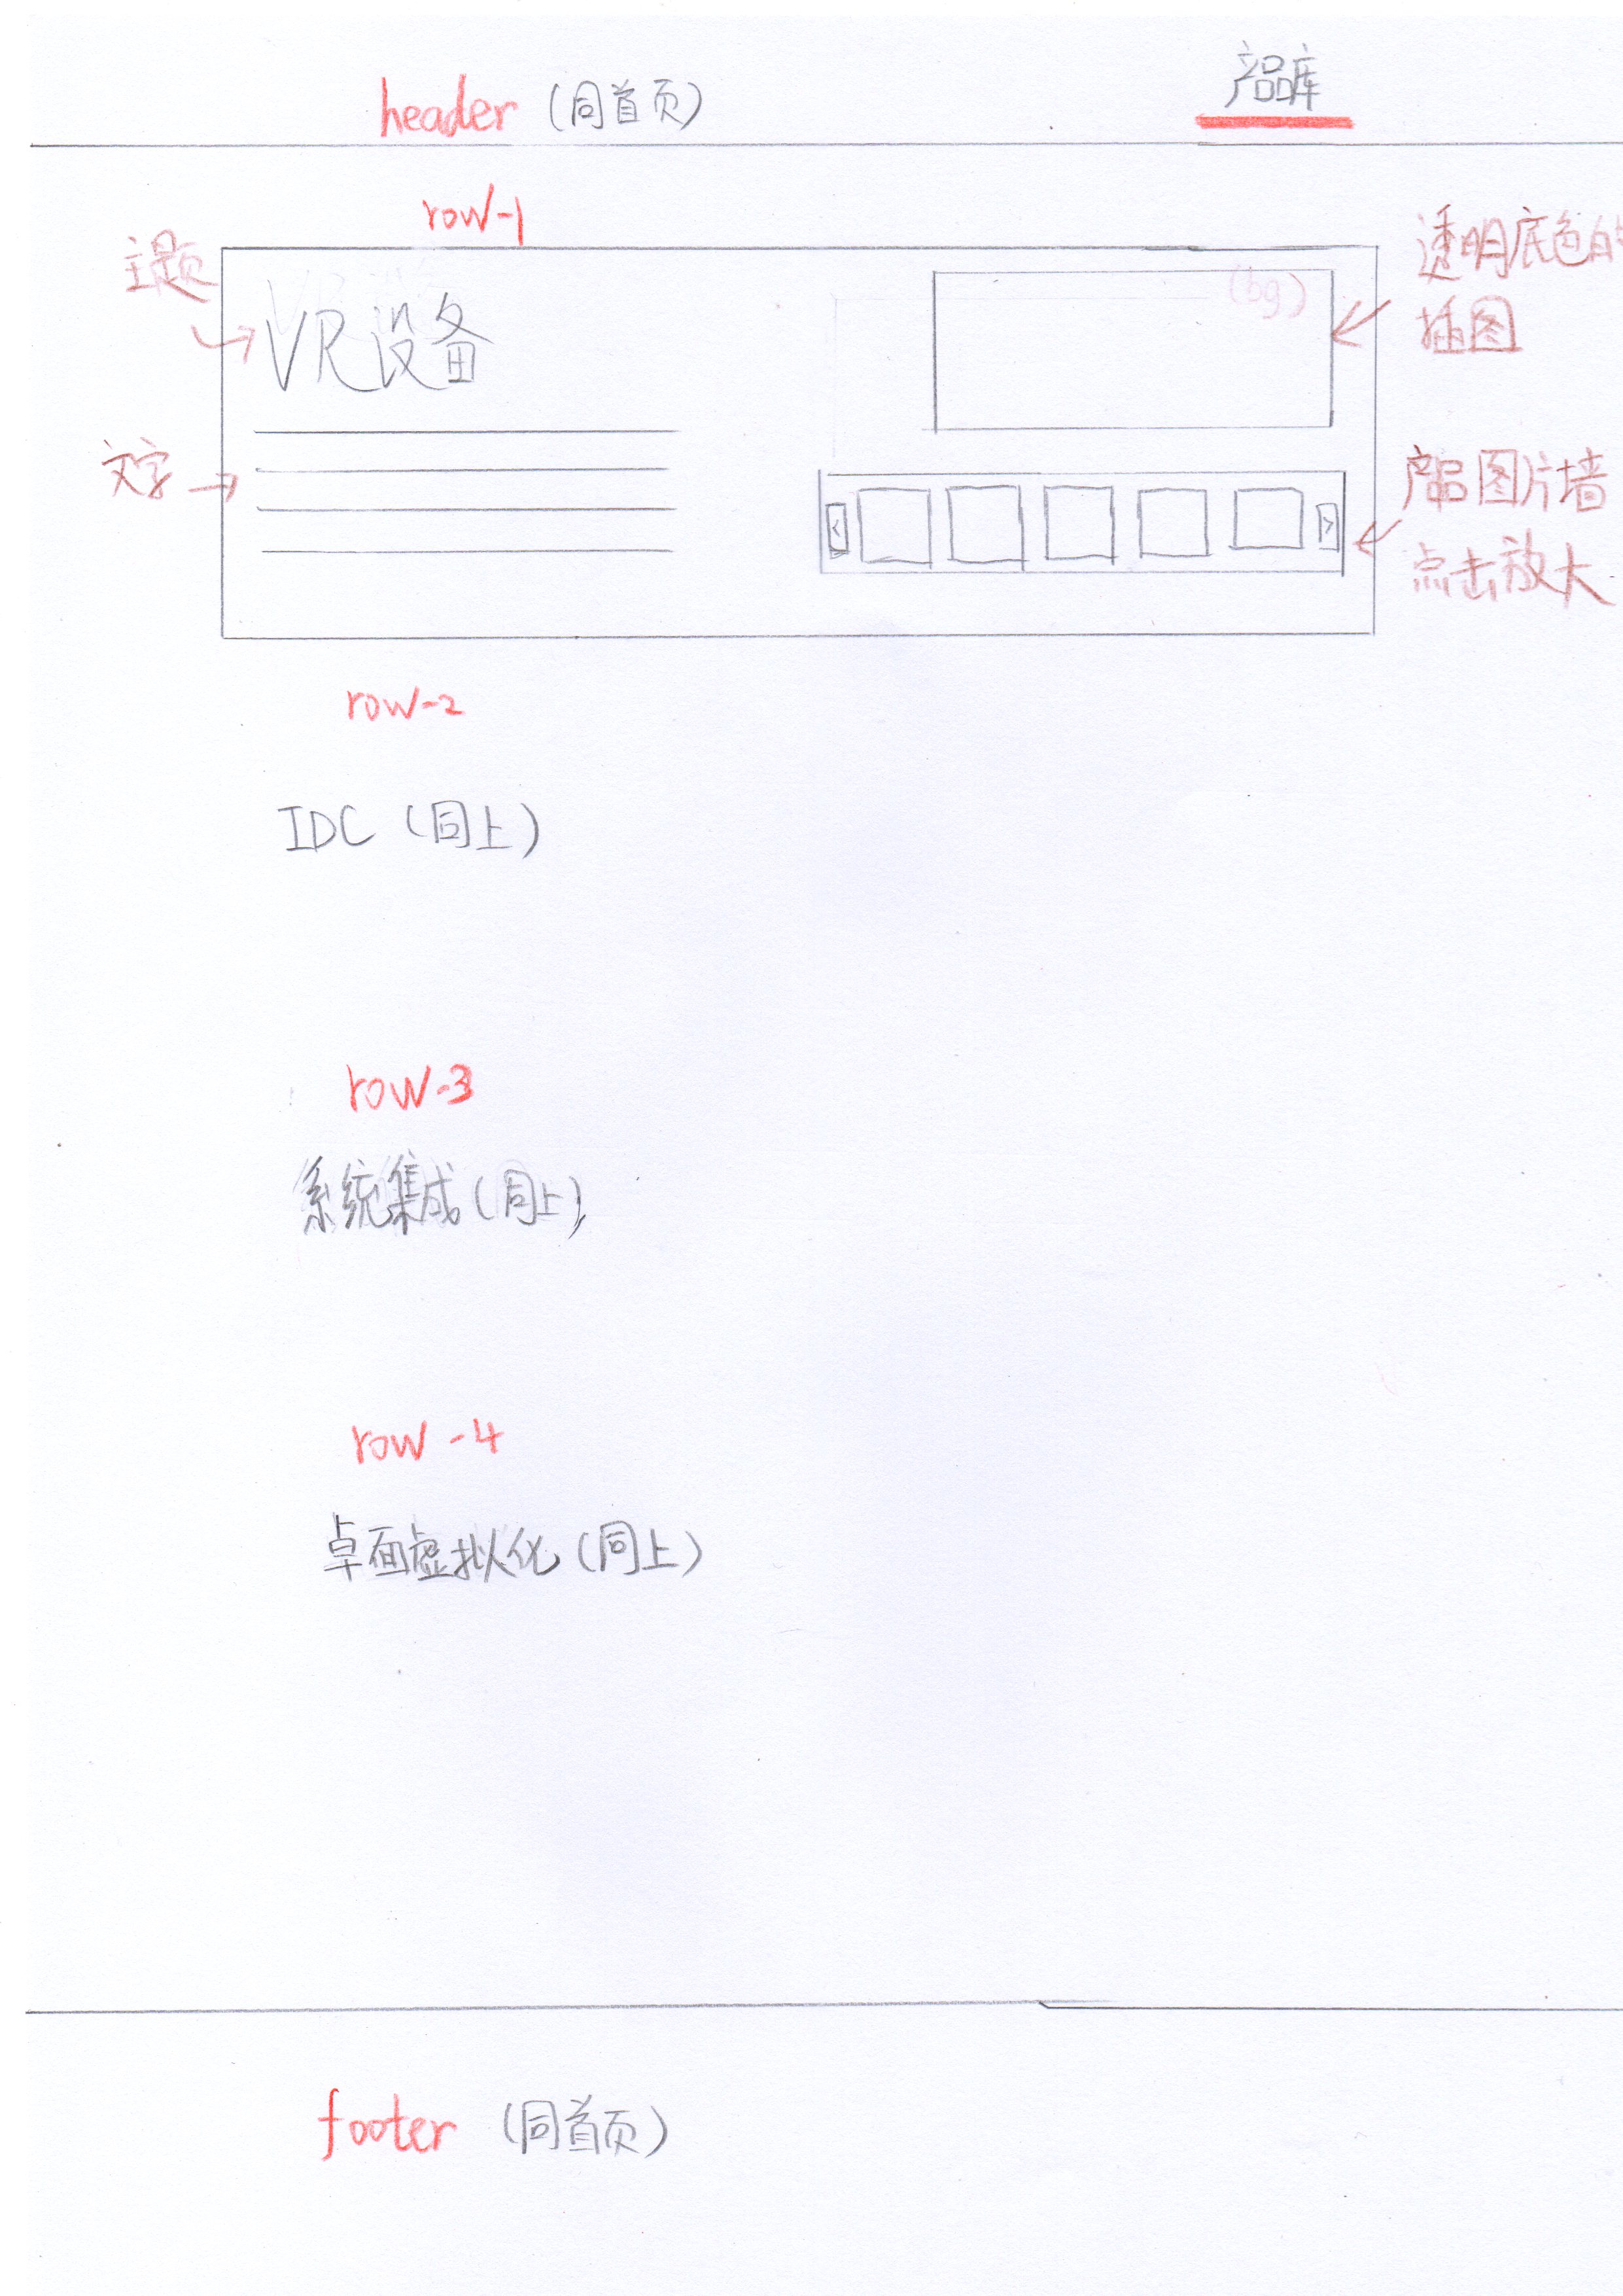 header (同首页)
产品库
row-1
主题
VR设备
(bg)
透明底色的
插图
文字
< >
产品图片墙
点击放大
row-2
IDC (同上)
row-3
系统集成 (同上)
row-4
桌面虚拟化 (同上)
footer (同首页)